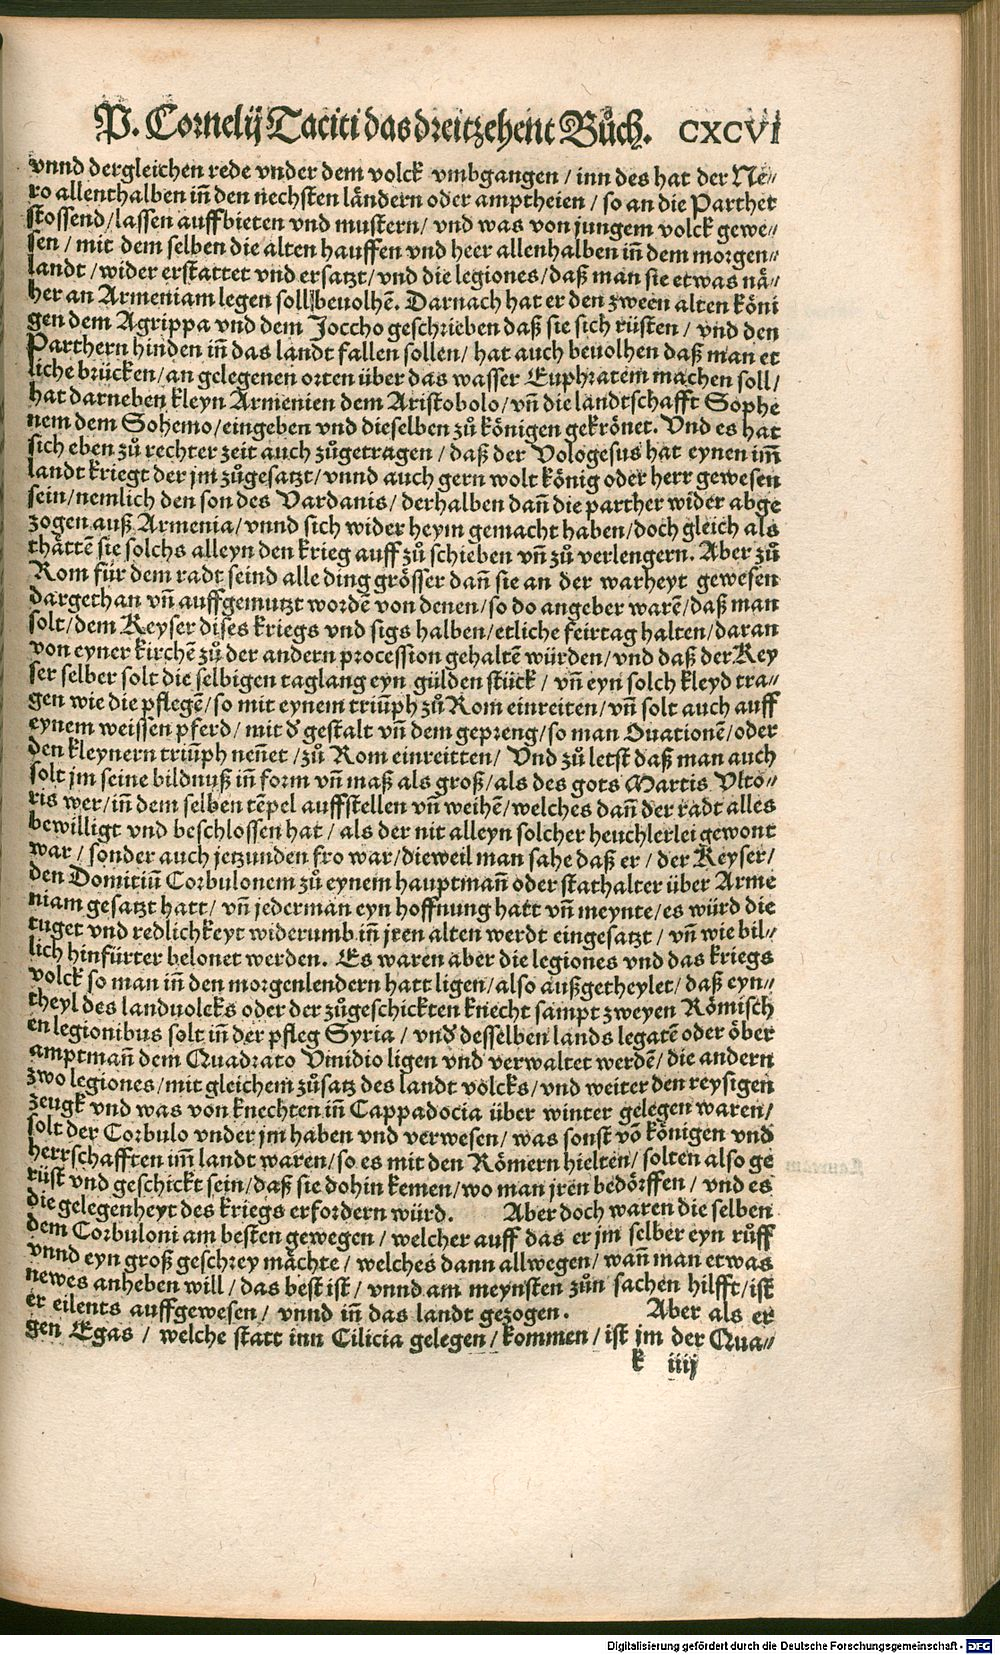 P. Cornelij Taciti das dreitzehent Bůch. CXCVI
vnnd dergleichen rede vnder dem volck vmbgangen / inn des hat der Ne⸗
ro allenthalben iñ den nechsten ländern oder amptheien / so an die Parthet
stossend / lassen auffbieten vnd mustern / vnd was von jungem volck gewe⸗
sen / mit dem selben die alten hauffen vnd heer allenhalben iñ dem morgen⸗
landt / wider erstattet vnd ersatzt / vnd die legiones / daß man sie etwas nä⸗
her an Armeniam legen soll beuolhẽ. Darnach hat er den zween alten köni
gen dem Agrippa vnd dem Joccho geschrieben daß sie sich rüsten / vnd den
Parthern hinden iñ das landt fallen sollen / hat auch beuolhen daß man et
liche brücken / an gelegenen orten über das wasser Euphratem machen soll /
hat darneben kleyn Armenien dem Aristobolo / vñ die landtschafft Sophe
nem dem Sohemo / eingeben vnd dieselben zů königen gekrönet. Vnd es hat
sich eben zů rechter zeit auch zůgetragen / daß der Vologesus hat eynen im̃
landt kriegt der jm zůgesatzt / vnnd auch gern wolt könig oder herr gewesen
sein / nemlich den son des Vardanis / derhalben dañ die parther wider abge
zogen auß Armenia / vnnd sich wider heym gemacht haben / doch gleich als
thättẽ sie solchs alleyn den krieg auff zů schieben vñ zů verlengern. Aber zů
Rom für dem radt seind alle ding grösser dañ sie an der warheyt gewesen
dargethan vñ auffgemutzt wordẽ von denen / so do angeber warẽ / daß man
solt / dem Keyser dises kriegs vnd sigs halben / etliche feirtag halten / daran
von eyner kirchẽ zů der andern procession gehaltẽ würden / vnd daß der Key
ser selber solt die selbigen taglang eyn gülden stück / vñ eyn solch kleyd tra⸗
gen wie die pflegẽ / so mit eynem triũph zů Rom einreiten / vñ solt auch auff
eynem weissen pferd / mit d̕ gestalt vñ dem gepreng / so man Ouationẽ / oder
den kleynern triũph neñet / zů Rom einreitten / Vnd zů letst daß man auch
solt jm seine bildnuß iñ form vñ maß als groß / als des gots Martis Vlto⸗
ris wer / iñ dem selben tẽpel auffstellen vñ weihẽ / welches dañ der radt alles
bewilligt vnd beschlossen hat / als der nit alleyn solcher heuchlerlei gewont
war / sonder auch jetzunden fro war / dieweil man sahe daß er / der Keyser /
den Domitiũ Corbulonem zů eynem hauptmañ oder stathalter über Arme
niam gesatzt hatt / vñ jederman eyn hoffnung hatt vñ meynte / es würd die
tuget vnd redlichkeyt widerumb iñ jren alten werdt eingesatzt / vñ wie bil⸗
lich hinfürter belonet werden. Es waren aber die legiones vnd das kriegs
volck so man iñ den morgenlendern hatt ligen / also außgetheylet / daß eyn⸗
theyl des landuolcks oder der zůgeschickten knecht sampt zweyen Römisch
en legionibus solt iñ der pfleg Syria / vnd̕ desselben lands legatẽ oder öber
amptmañ dem Quadrato Vinidio ligen vnd verwaltet werdẽ / die andern
zwo legiones / mit gleichem zůsatz des landt volcks / vnd weiter den reysigen
zeugk vnd was von knechten iñ Cappadocia über winter gelegen waren /
solt der Corbulo vnder jm haben vnd verwesen / was sonst võ königen vnd
herrschafften im̃ landt waren / so es mit den Römern hielten / solten also ge
rüst vnd geschickt sein / daß sie dohin kemen / wo man jren bedörffen / vnd es
die gelegenheyt des kriegs erfordern würd. Aber doch waren die selben
dem Corbuloni am besten gewegen / welcher auff das er jm selber eyn růff
vnnd eyn groß geschrey mächte / welches dann allwegen / wañ man etwas
newes anheben will / das best ist / vnnd am meynsten zůn sachen hilfft / ist
er eilents auffgewesen / vnnd iñ das landt gezogen. Aber als er
gen Egas / welche statt inn Cilicia gelegen / kommen / ist jm der Qua⸗
k iiij
Digitalisierung gefördert durch die Deutsche Forschungsgemeinschaft - DFG